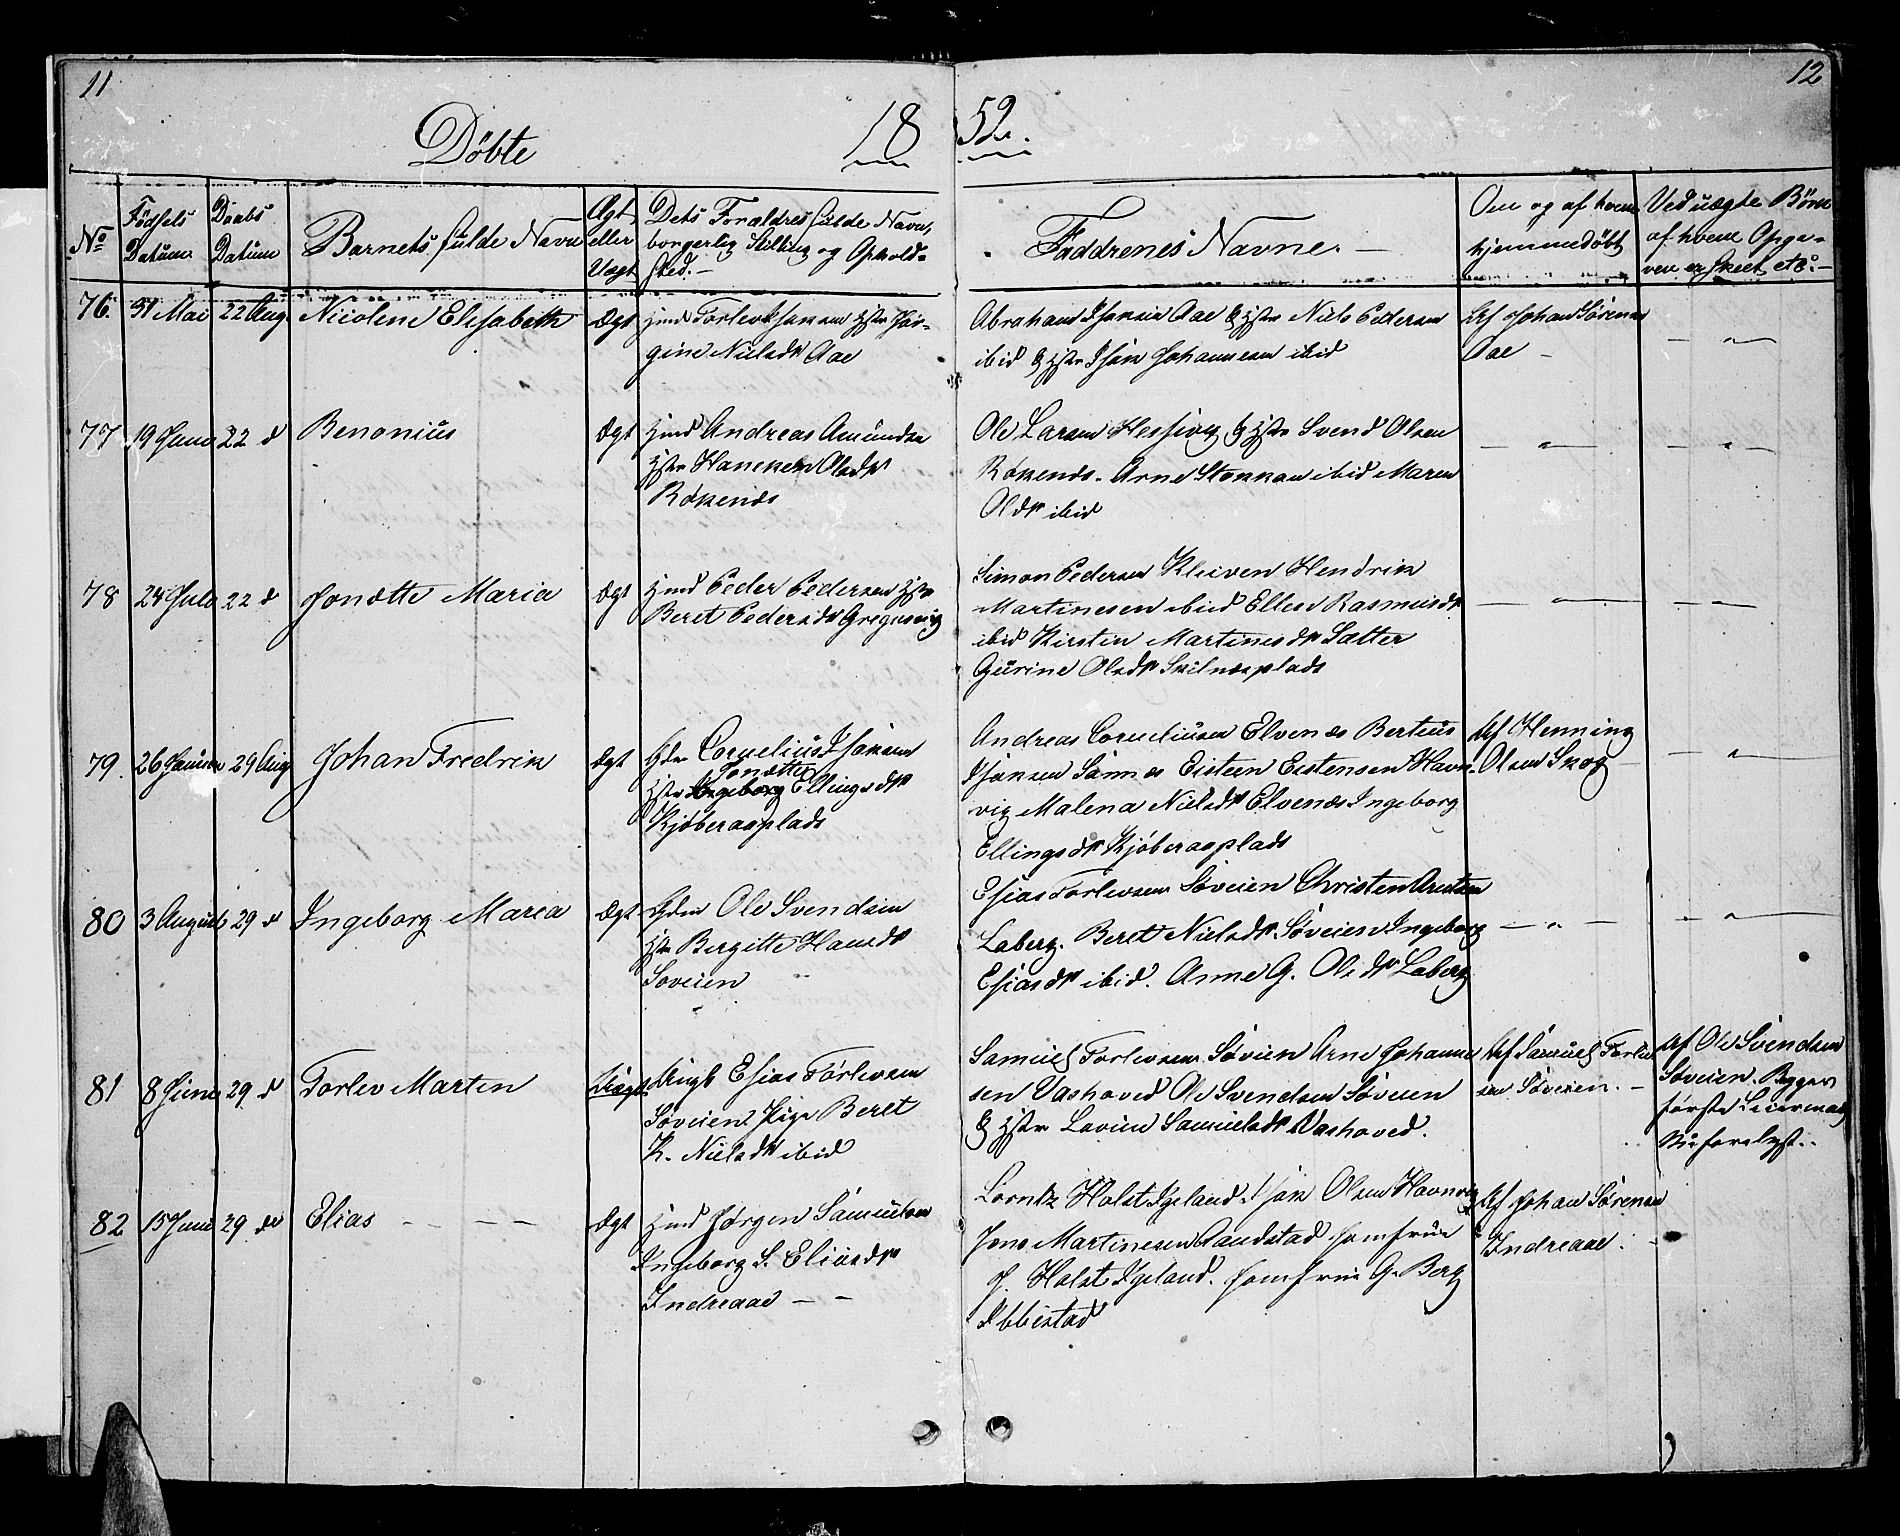 11
12
Döbte
18 52.
No
Födsels Datum
Daabs Datum
Barnets fulde Navn
Ægt eller Uægt
Dets Forældres fulde Navn, borgerlig Stilling og Opholdssted.
Faddrenes Navne.
Om og af hvem hjemmedøbt
Ved uægte Børn af hvem Opgaven er skeet etc.
76. 31 Mai 22 Aug. Nicoline Elisabeth Ægt
Hmd Torlev Isaksen Hstr
gine Nielsdr Aae
Abraham Isaksen Aae & Hstr Niels Pedersen
ibid & Hstr Isak Johannesen ibid
Af Johan Sörensen
Aae
77 19 Juni 22 d Benonius Ægt
Hmd Andreas Amundsen
Hstr Haneken Olsdr
Rökenæs
Ole Larsen & Hstr Svend Olsen
Rökenæs. Arne Stokkan ibid Maren
Olsdr ibid
78 24 Juli 22 d Jonætte Maria Ægt
Hmd Peder Pedersen Hstr
Beret Pedersdr Gregusvig
Simon Pedersen Kleiven Hendrik
Martinesen ibid Ellen Rasmusdr
ibid Kirstin Martinesdr Sætter
Gurine Olsdr
79. 26 29 Aug Johan Fredrik Ægt
Gdr Cornelius Isaksen
Jonætte
Hstr Ellingsdr
Kjöberasplads
Andreas Corneliusen Elvenæs Berteus
Isaksen Sannes Eisteen Eestensen Havn-
vig Malena Nielsdr Elvenæs Ingeborg
Ellingsdr Kjöberasplads
Af Henning
Olsen Skog
80 3 August 29 d Ingeborg Marea Ægt
Gdm Ole Svendsen
Hstr Bergitte Hansdr
Söveien
Esias Torlevsen Söveien Christen Arntsen
Laberg. Beret Nielsdr Söveien Ingeborg
Esiasdr ibid. Anne G. Olsdr Laberg
81 8 Juni 29 d Torlev Marten Uægt
Ungk Esias Torlevsen
Söveien Pige Beret
K. Nielsdr ibid
Samuel Torlevsen Söveien Arne Johanne
sen Vashoved Ole Svendsen Söveien
& Hstr Lovise Samuelsdr Vashoved.
Af Samuel Torlev
sen Söveien.
Af Ole Svendsen
Söveien. Begges
første Leiermaal
82 15 Juni 29 de Elias Ægt
Hmd Jørgen Samuelsen
Ingeborg S. Eliasdr
Indreaae
Lorntz Holst Isak Olsen Havnvig
Jens Martinesen Aandstad Jomfrue
J. Holst Jomfrue G. Berg
Ibbestad
Af Johan Sörensen
Indreaae.